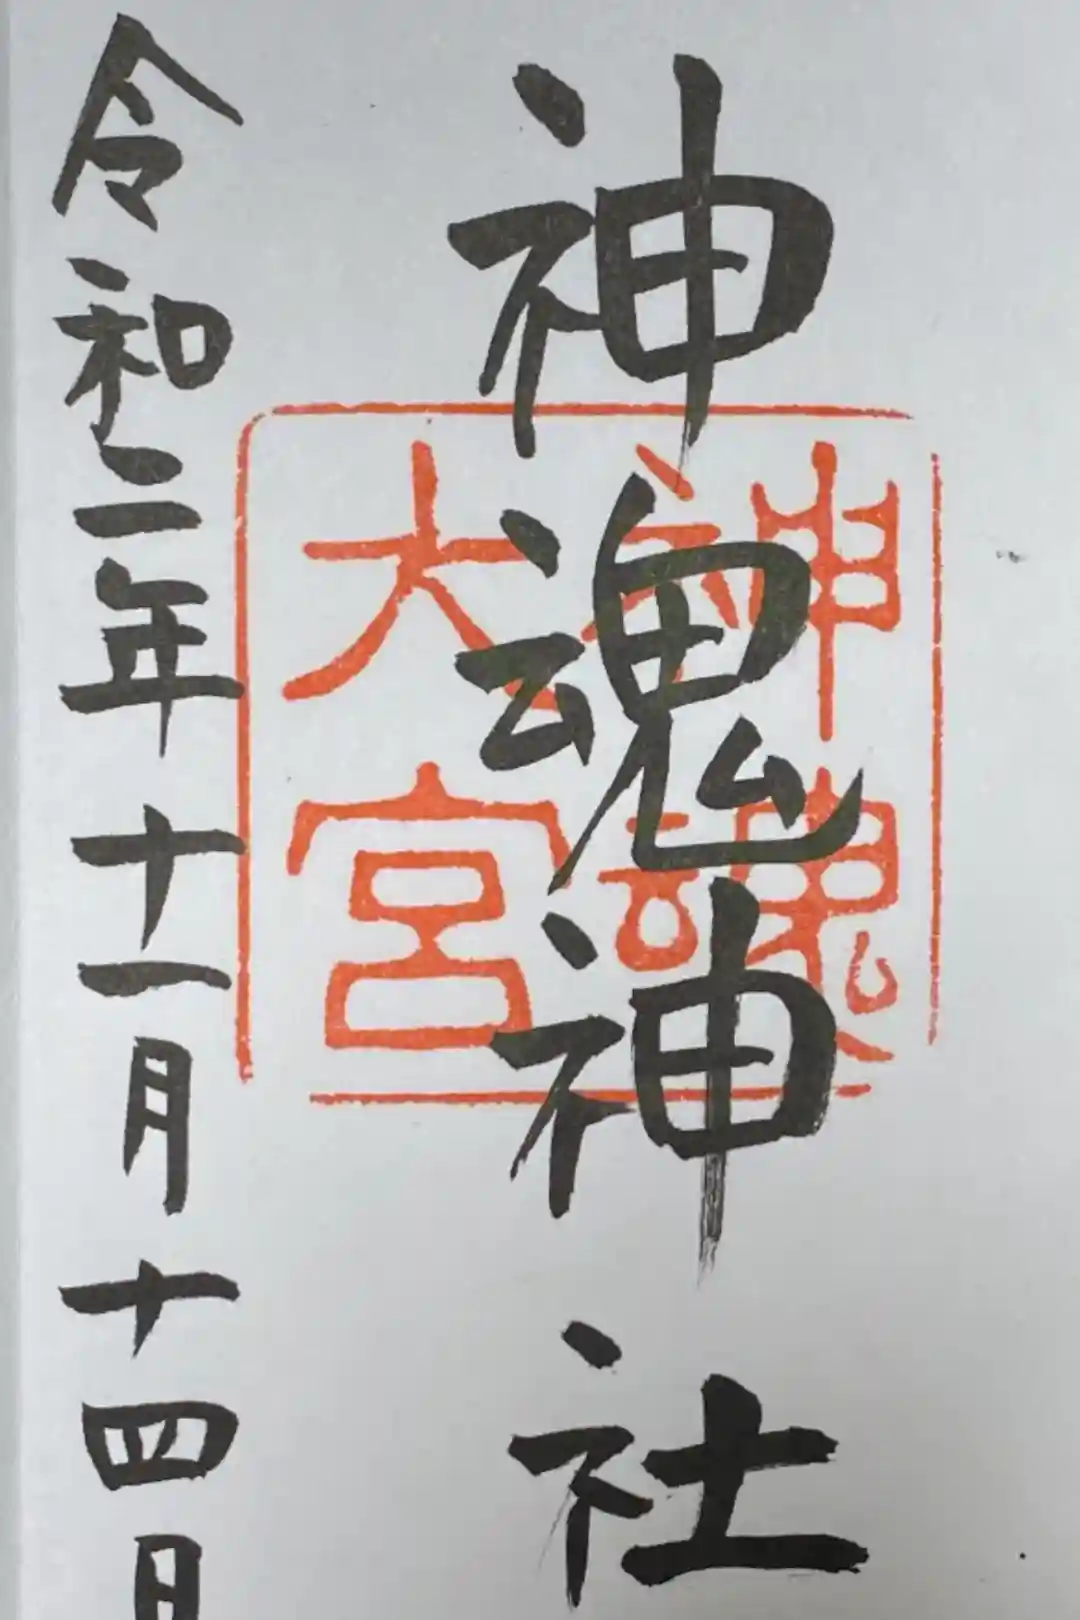 神魂神社
神魂
大宮
令和二年十一月十四日